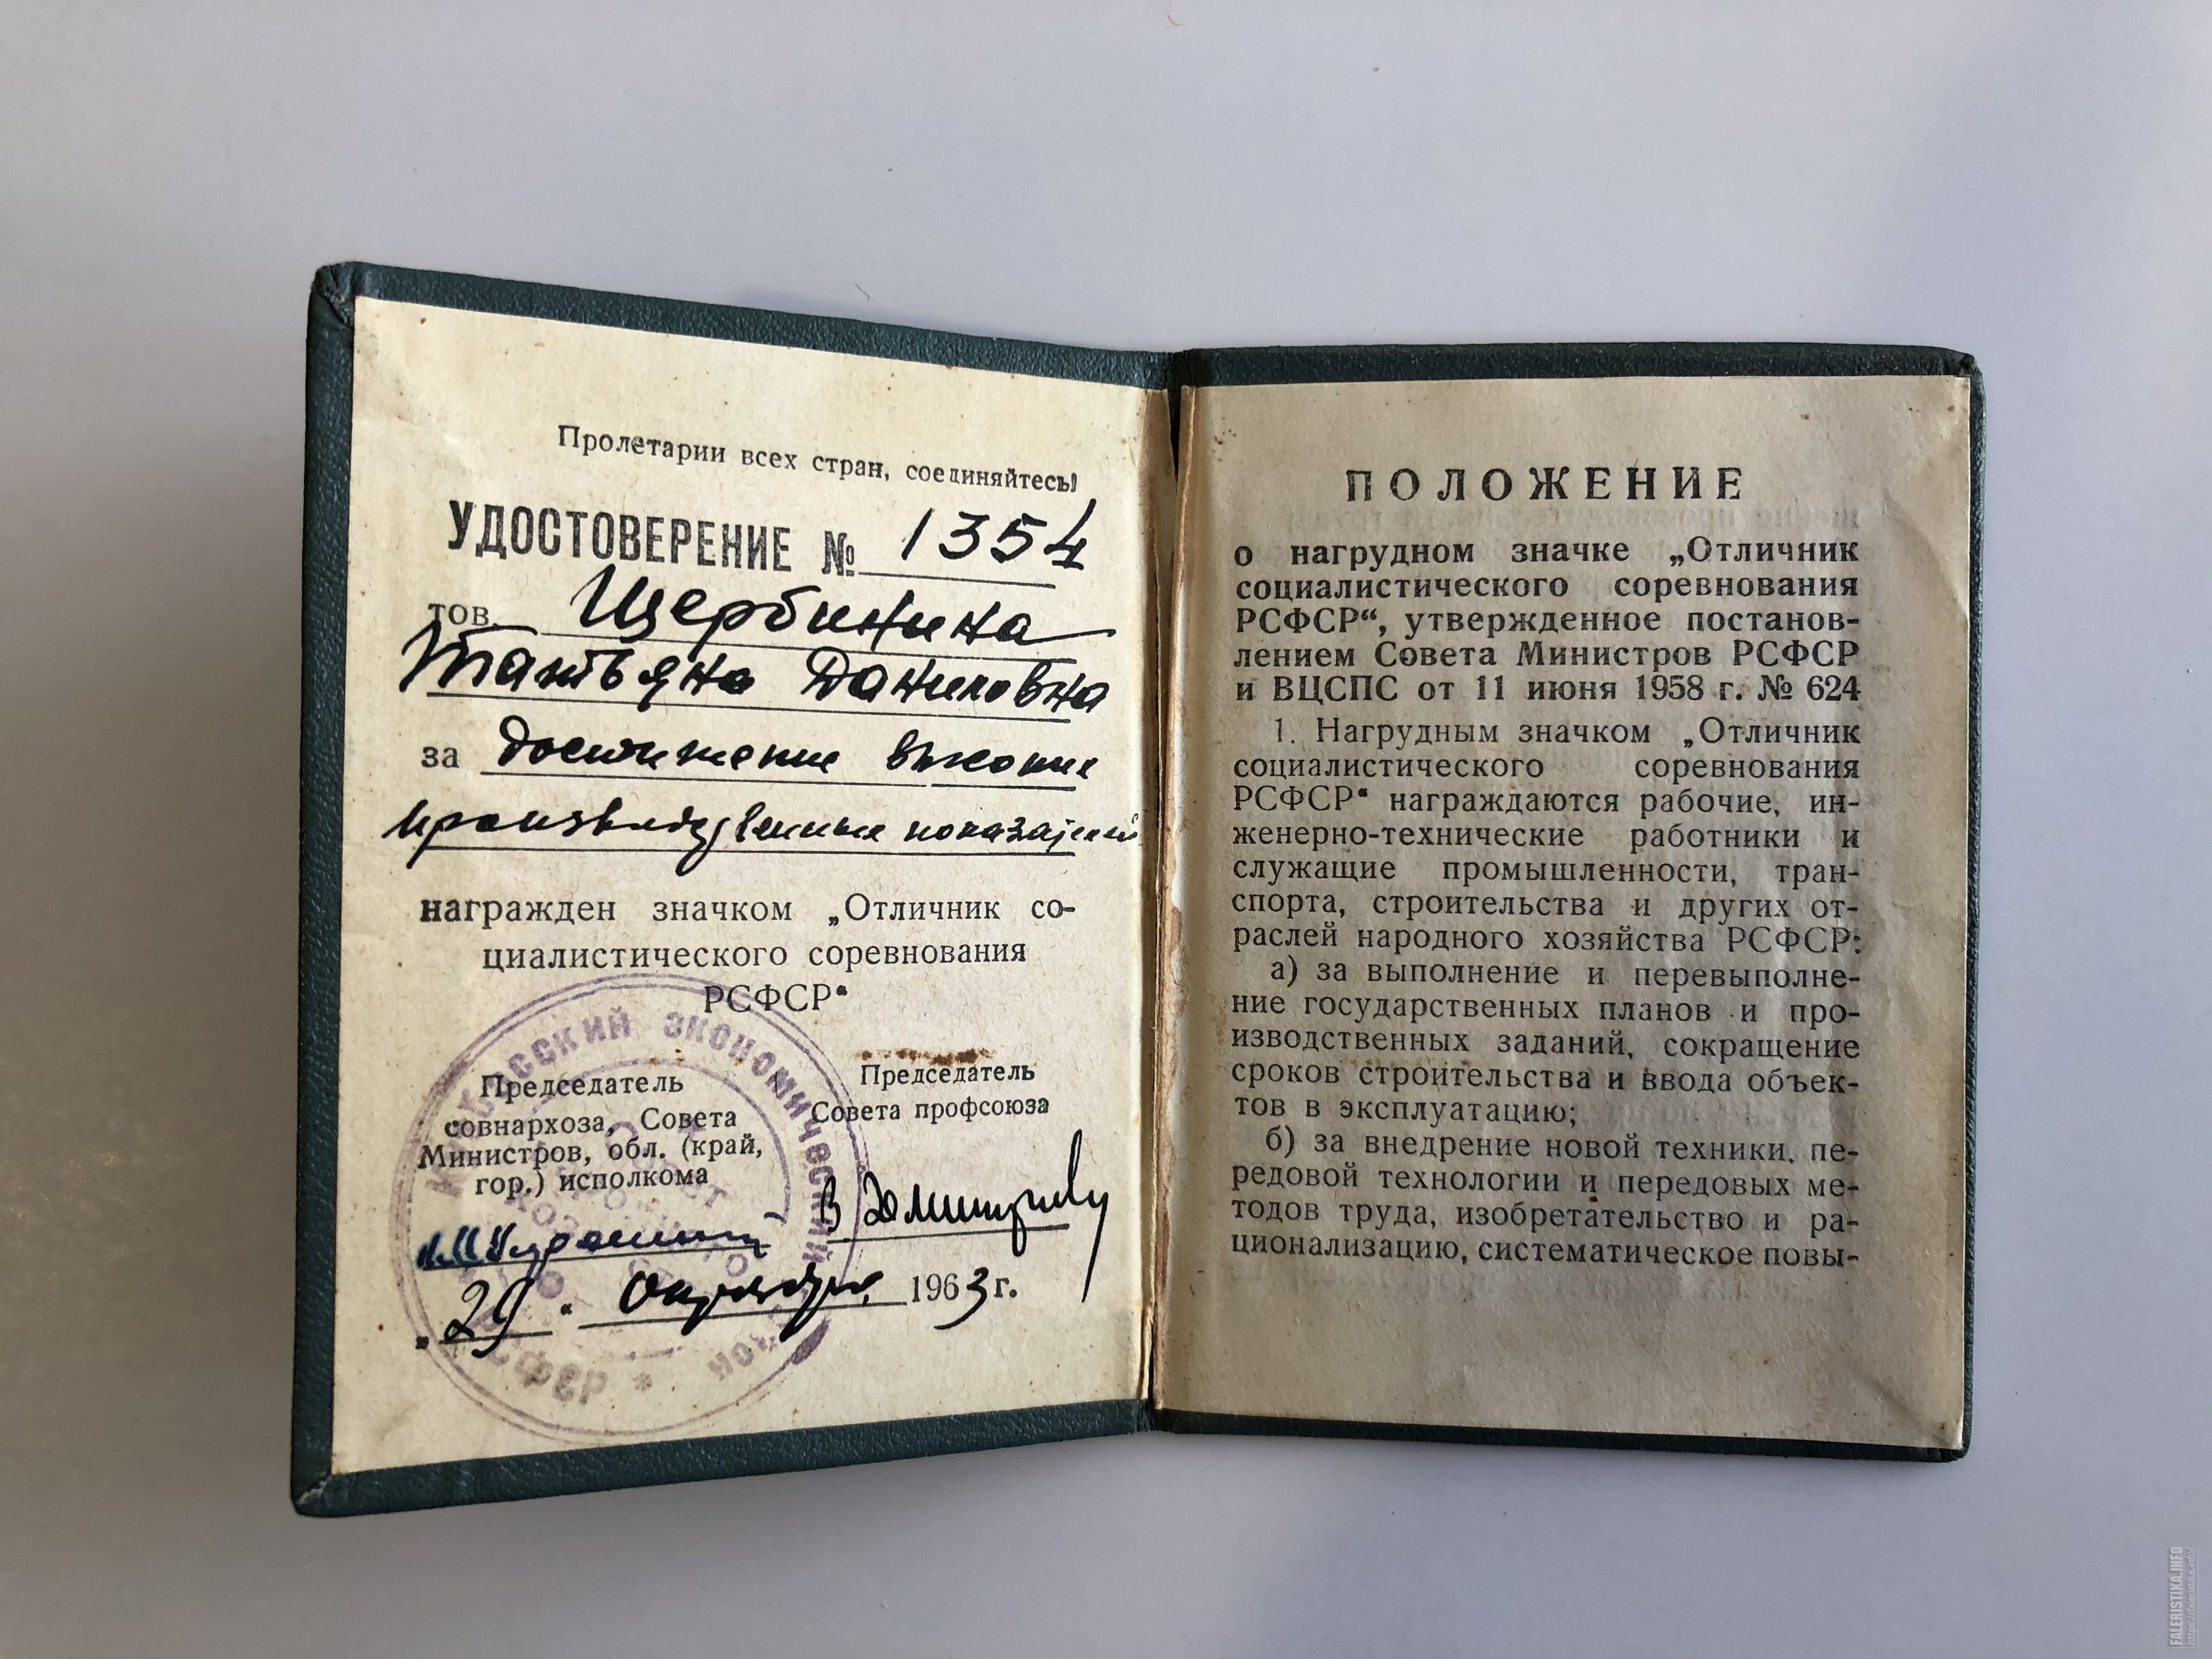 Пролетарии всех стран, соединяйтесь!
УДОСТОВЕРЕНИЕ № 1354
тов. Щербинина
Татьяна Даниловна
за достижение высоких
производственных показателей
награжден значком „Отличник со-
циалистического соревнования
РСФСР“
Председатель
совнархоза, Совета
Министров, обл. (край,
гор.) исполкома
Председатель
Совета профсоюза
„29“ октября 1963 г.
экономический
РСФСР *
ПОЛОЖЕНИЕ
о нагрудном значке „Отличник
социалистического соревнования
РСФСР“, утвержденное постанов-
лением Совета Министров РСФСР
и ВЦСПС от 11 июня 1958 г. № 624
1. Нагрудным значком „Отличник
социалистического соревнования
РСФСР“ награждаются рабочие, ин-
женерно-технические работники и
служащие промышленности, тран-
спорта, строительства и других от-
раслей народного хозяйства РСФСР:
а) за выполнение и перевыполне-
ние государственных планов и про-
изводственных заданий, сокращение
сроков строительства и ввода объек-
тов в эксплуатацию;
б) за внедрение новой техники, пе-
редовой технологии и передовых ме-
тодов труда, изобретательство и ра-
ционализацию, систематическое повы-
FALERISTIKA.INFO
https://faleristika.info/